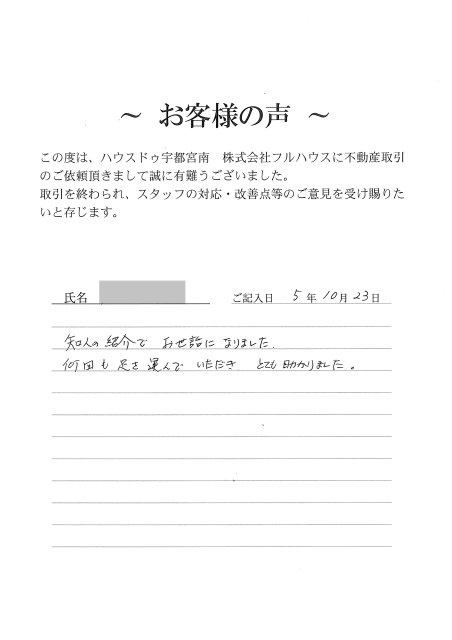 ～ お客様の声 ～
この度は、ハウスドゥ宇都宮南　株式会社フルハウスに不動産取引
のご依頼頂きまして誠に有難うございました。
取引を終わられ、スタッフの対応・改善点等のご意見を受け賜りた
いと存じます。
氏名　ご記入日　5年10月23日
知人の紹介で お世話になりました.
何回も足を運んで いただき とても助かりました。